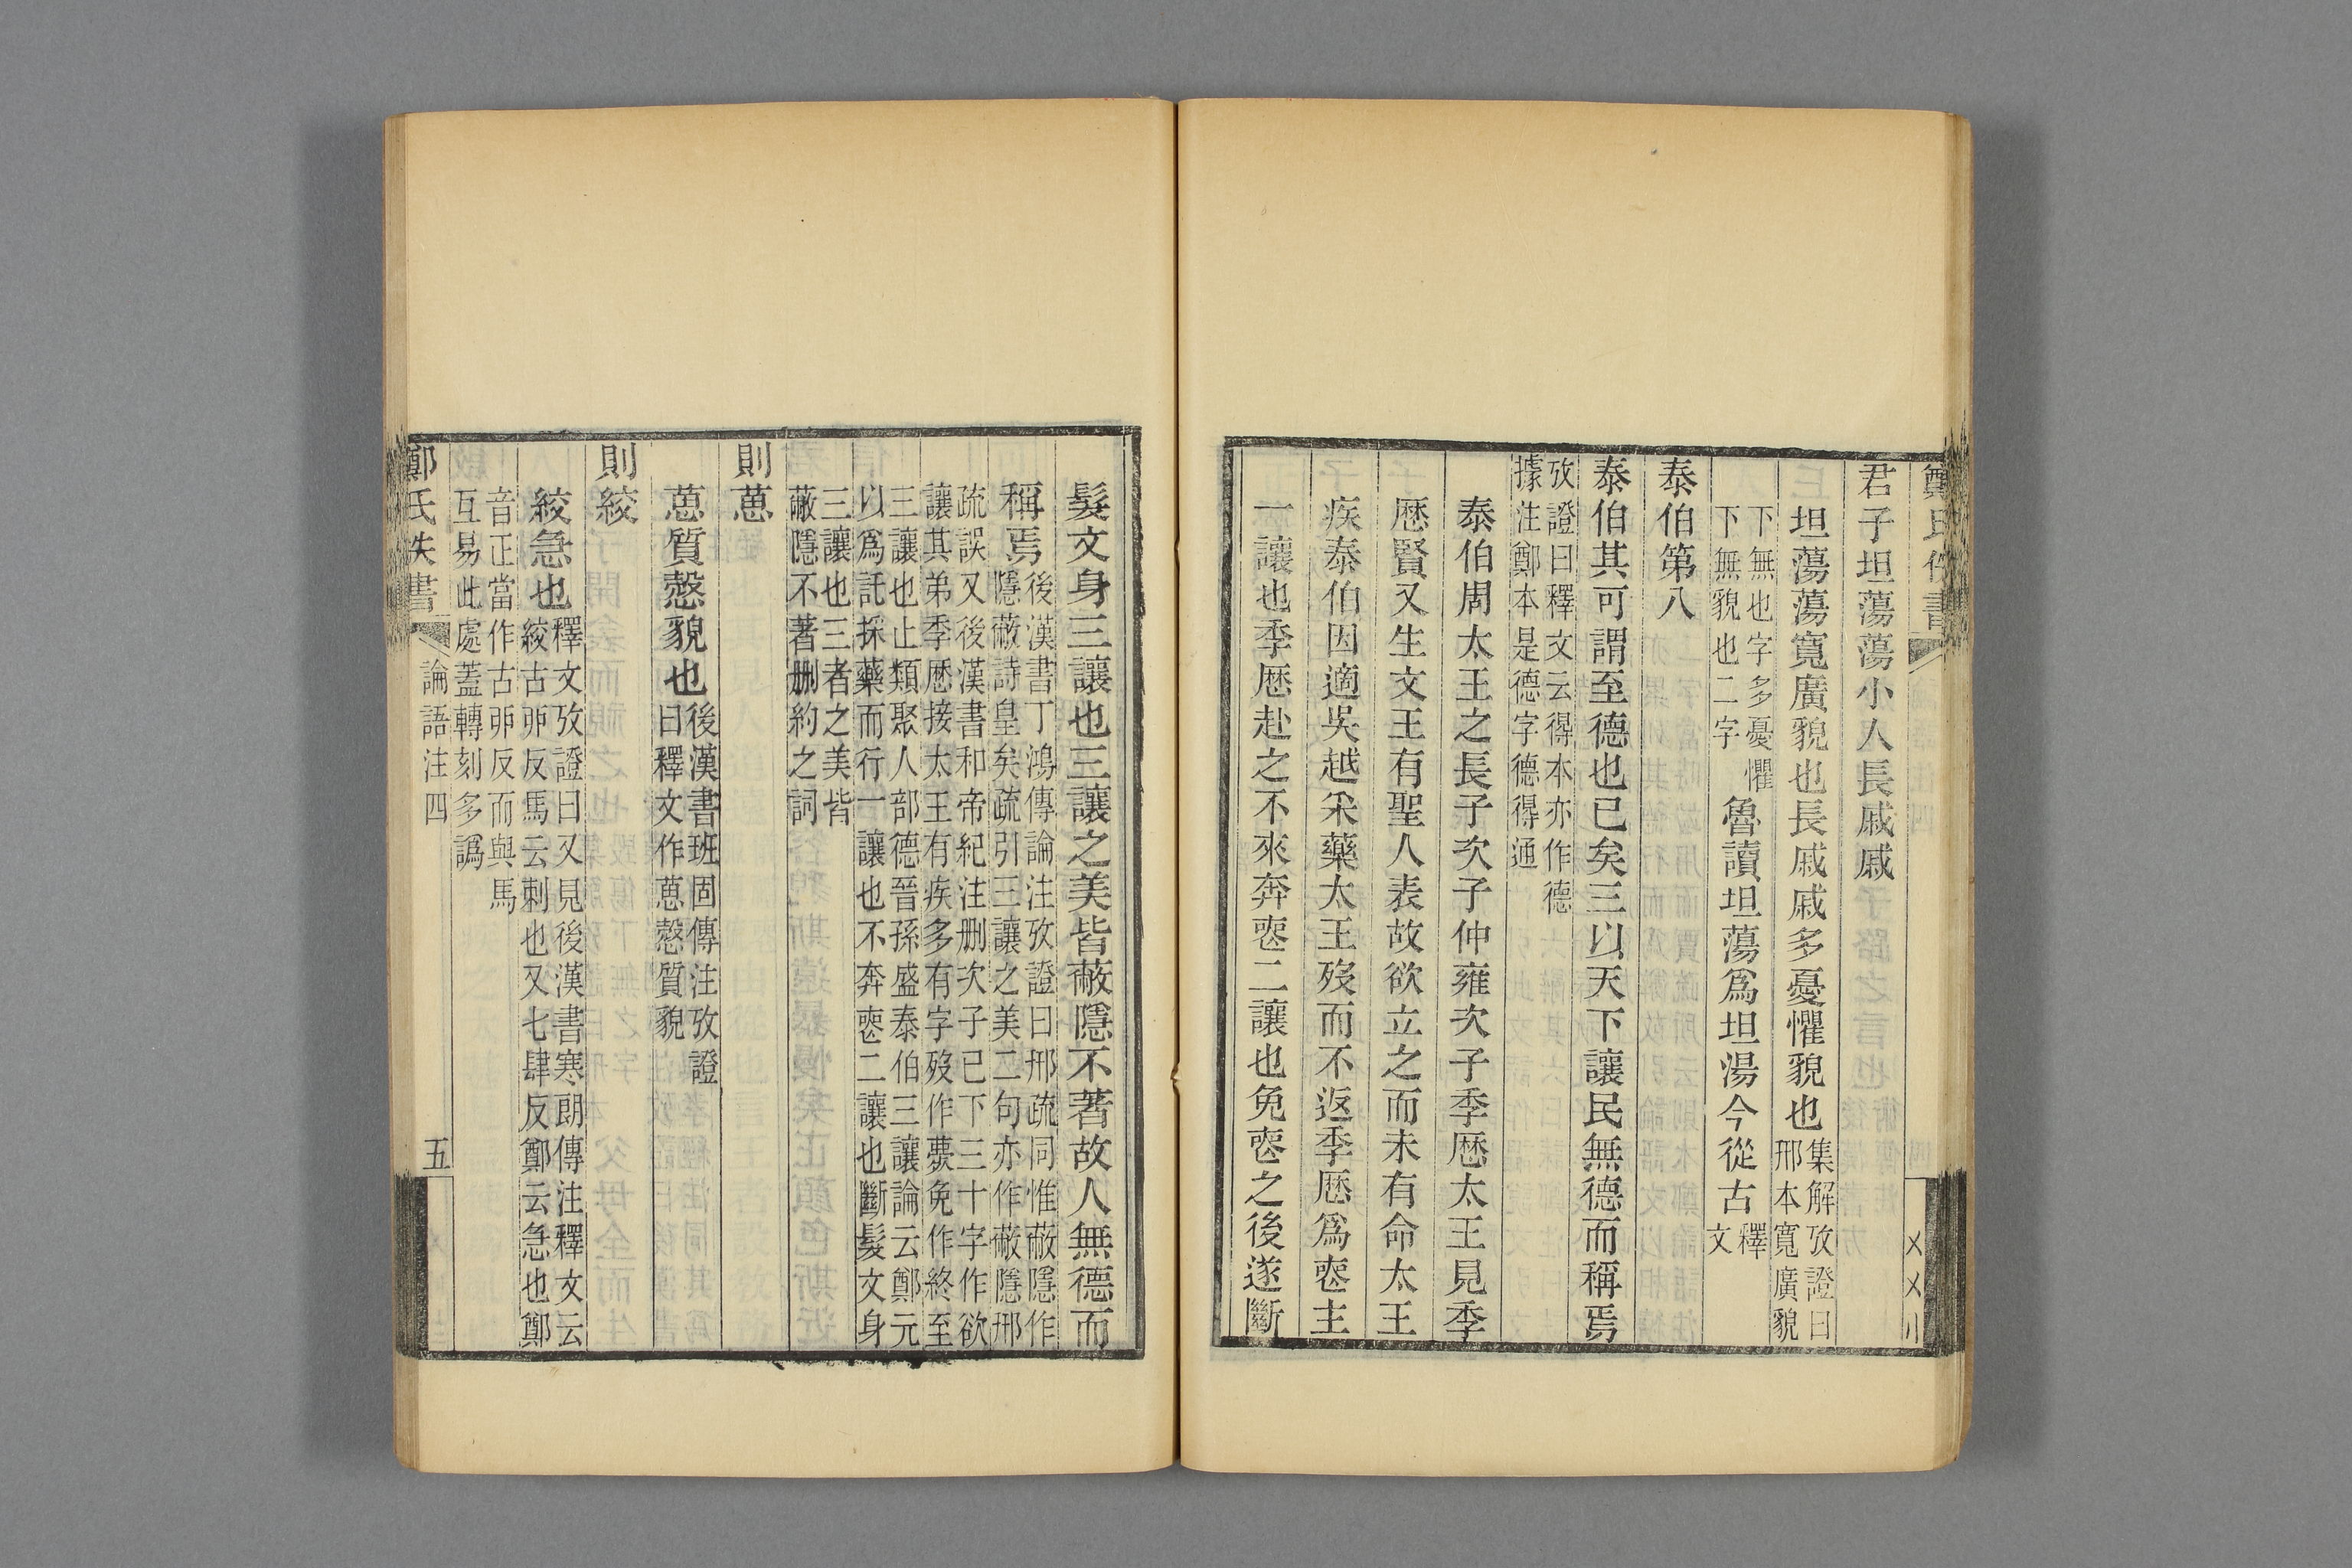 鄭氏佚書
君子坦蕩蕩小人長戚戚
坦蕩蕩寬廣貌也長戚戚多憂懼貌也集解攷證曰
邢本寬廣貌
下無也字多憂懼
下無貌也二字魯讀坦蕩爲坦湯今從古釋
文
泰伯第八
泰伯其可謂至德也已矣三以天下讓民無德而稱焉
攷證曰釋文云得本亦作德
據注鄭本是德字德得通
泰伯周太王之長子次子仲雍次子季歷太王見季
歷賢又生文王有聖人表故欲立之而未有命太王
疾泰伯因適吳越采藥太王歿而不返季歷爲喪主
一讓也季歷赴之不來奔喪二讓也免喪之後遂斷
髮文身三讓也三讓之美皆蔽隱不著故人無德而
稱焉後漢書丁鴻傳論注攷證曰邢疏同惟蔽隱作
隱蔽詩皇矣疏引三讓之美二句亦作蔽隱邢
疏誤又後漢書和帝紀注删次子已下三十字作欲
讓其弟季歷接太王有疾多有字歿作薨免作終至
三讓也止類聚人部德晉孫盛泰伯三讓論云鄭元
以爲託採藥而行一讓也不奔喪二讓也斷髮文身
三讓也三者之美皆
蔽隱不著删約之詞
則葸
葸質愨貌也後漢書班固傳注攷證
曰釋文作葸愨質貌
則絞
絞急也釋文攷證曰又見後漢書寒朗傳注釋文云
絞古卯反馬云刺也又七肆反鄭云急也鄭
音正當作古卯反而與馬
互易此處蓋轉刻多譌
鄭氏佚書
論語注四
五